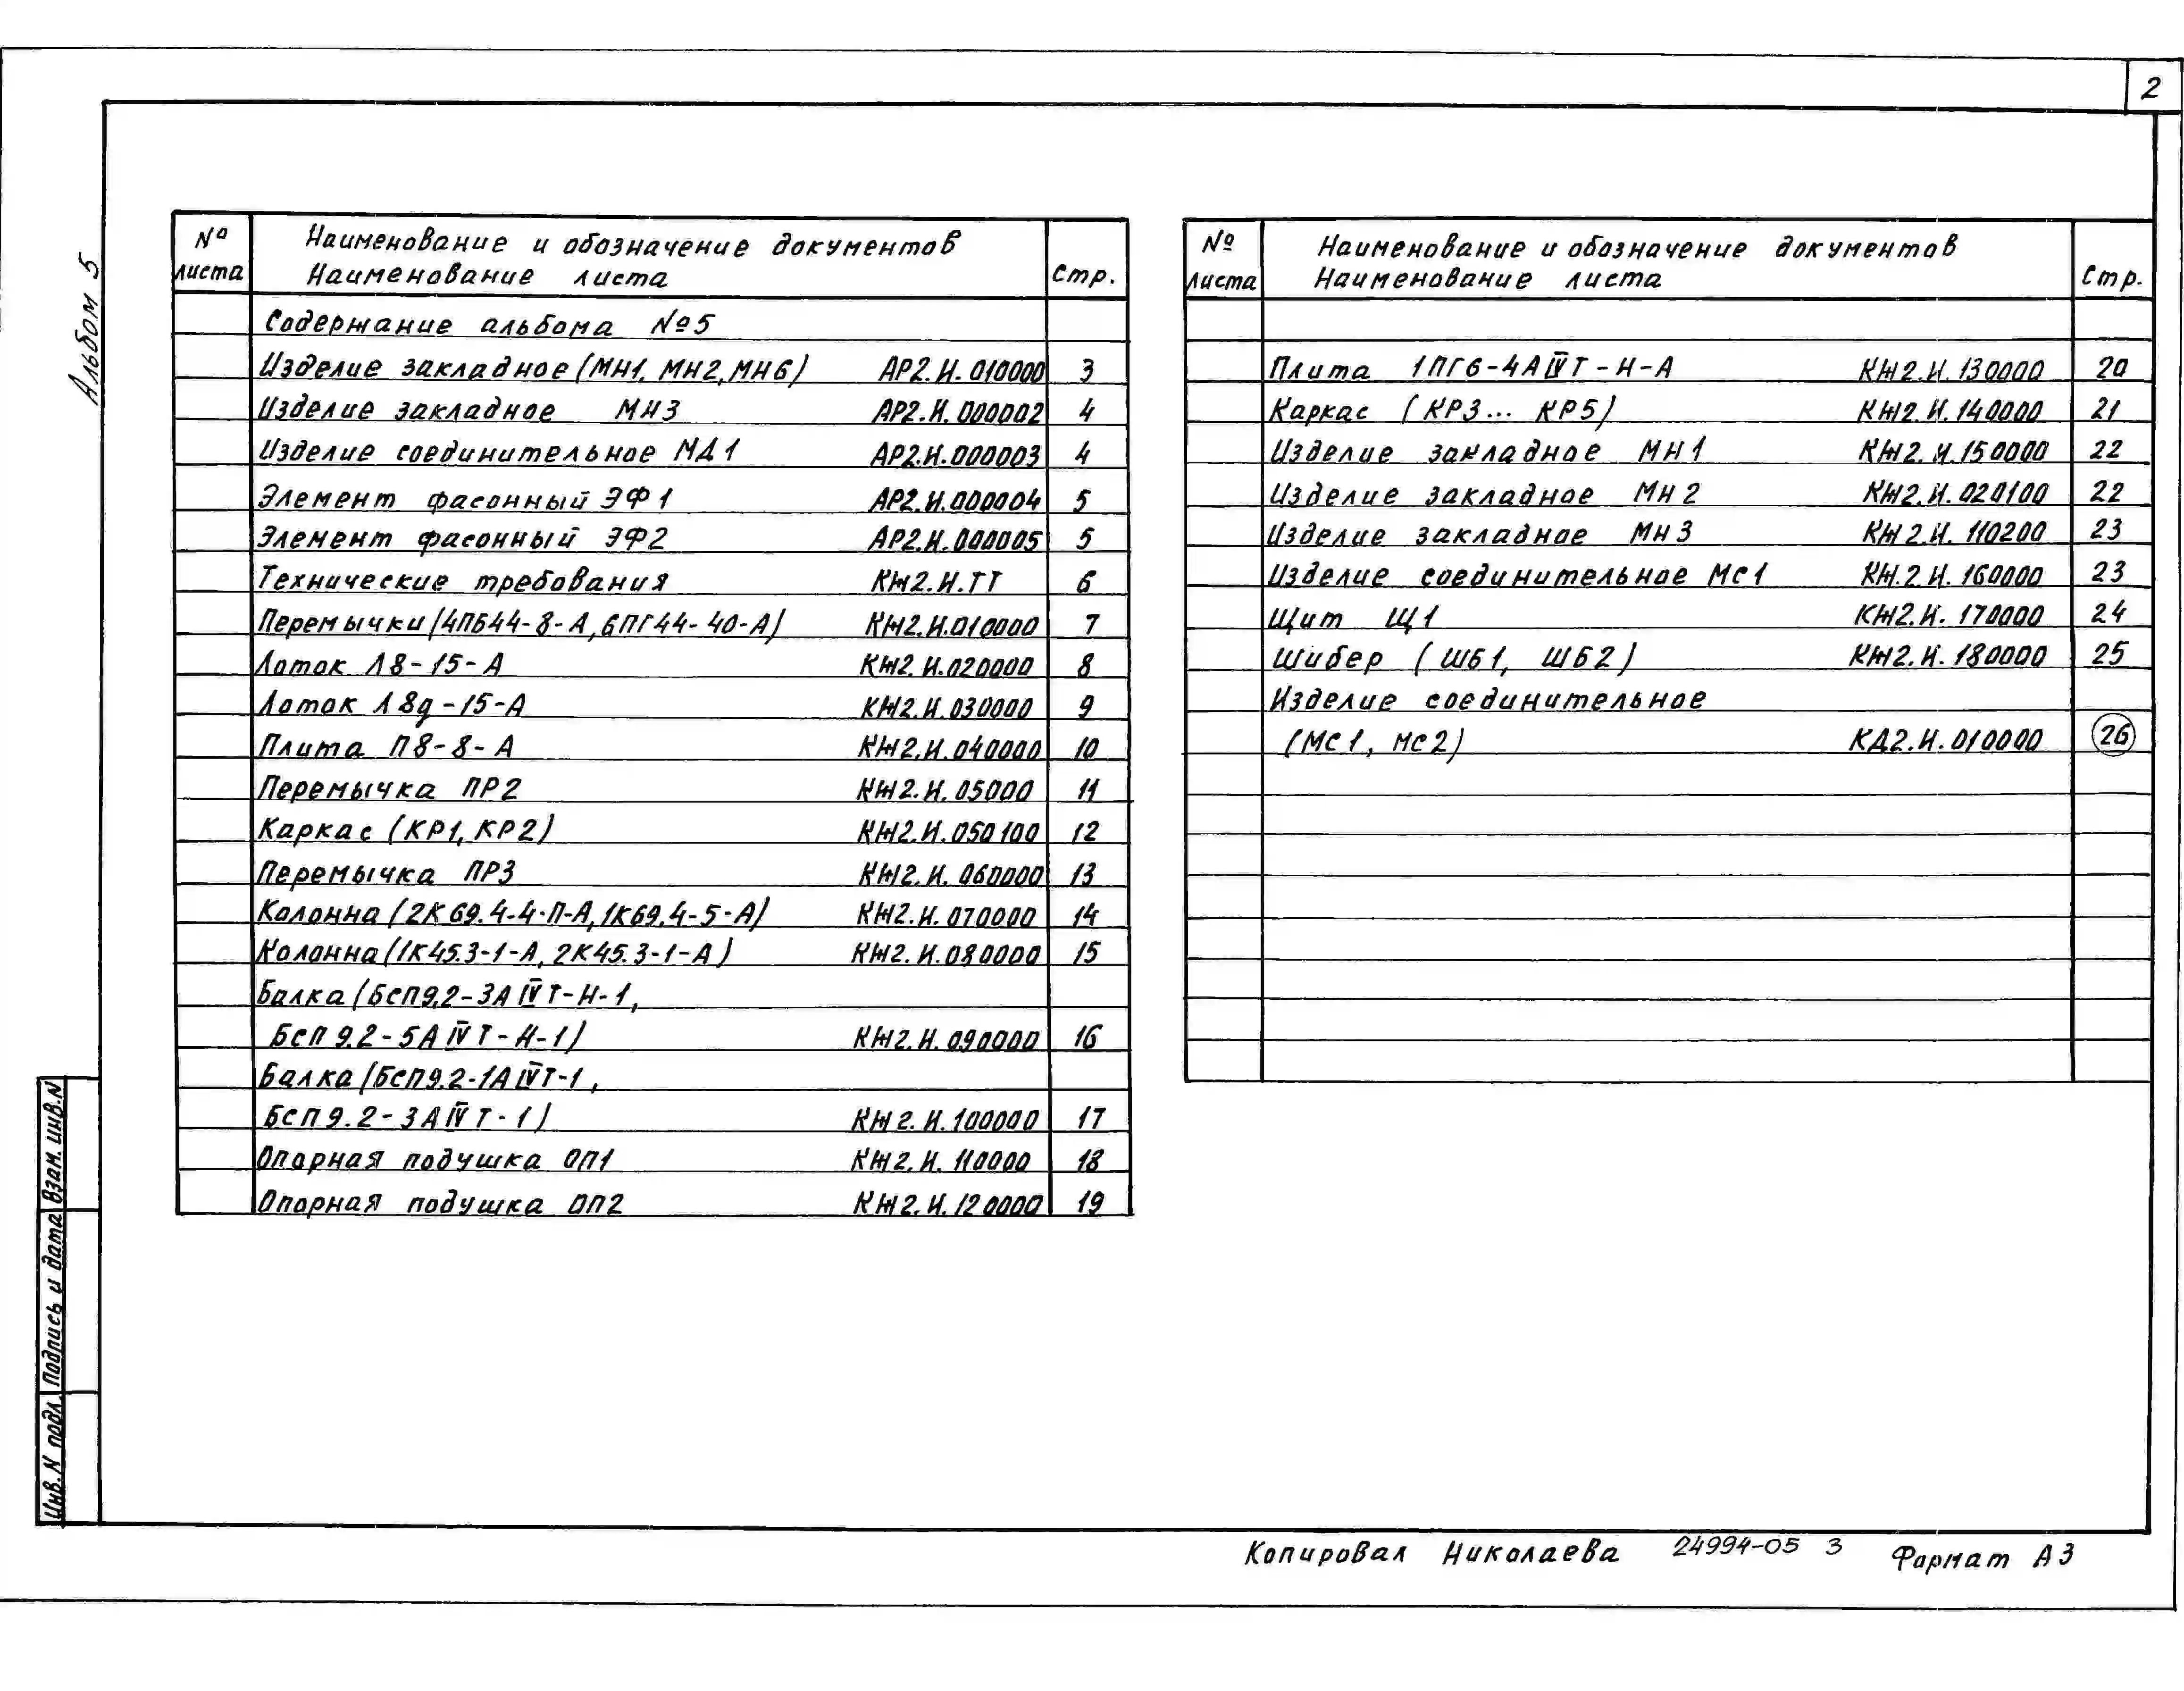 2
Альбом 5
№ листа Наименование и обозначение документов Наименование листа Стр.
Содержание альбома №5
Изделие закладное (МН1, МН2, МН6) АР2.И.010000 3
Изделие закладное МН3 АР2.И.000002 4
Изделие соединительное МД1 АР2.И.000003 4
Элемент фасонный ЭФ1 АР2.И.000004 5
Элемент фасонный ЭФ2 АР2.И.000005 5
Технические требования КЖ2.И.ТТ 6
Перемычки (4ПБ44-8-А, 6ПГ44-40-А) КЖ2.И.010000 7
Лоток Л8-15-А КЖ2.И.020000 8
Лоток Л8д-15-А КЖ2.И.030000 9
Плита П8-8-А КЖ2.И.040000 10
Перемычка ПР2 КЖ2.И.05000 11
Каркас (КР1, КР2) КЖ2.И.050100 12
Перемычка ПР3 КЖ2.И.060000 13
Колонна (2К69.4-4-П-А, 1К69.4-5-А) КЖ2.И.070000 14
Колонна (1К45.3-1-А, 2К45.3-1-А) КЖ2.И.080000 15
Балка (БСП9.2-3АIVТ-Н-1,
БСП9.2-5АIVТ-Н-1) КЖ2.И.090000 16
Балка (БСП9.2-1АIVТ-1,
БСП9.2-3АIVТ-1) КЖ2.И.100000 17
Опорная подушка ОП1 КЖ2.И.110000 18
Опорная подушка ОП2 КЖ2.И.120000 19
№ листа Наименование и обозначение документов Наименование листа Стр.
Плита 1ПГ6-4АIVТ-Н-А КЖ2.И.130000 20
Каркас (КР3... КР5) КЖ2.И.140000 21
Изделие закладное МН1 КЖ2.И.150000 22
Изделие закладное МН2 КЖ2.И.020100 22
Изделие закладное МН3 КЖ2.И.110200 23
Изделие соединительное МС1 КЖ.2.И.160000 23
Щит Щ1 КЖ2.И.170000 24
Шибер (ШБ1, ШБ2) КЖ2.И.180000 25
Изделие соединительное
(МС1, МС2) КД2.И.010000 26
Взам. инв.N
Подпись и дата
Инв.N подл.
Копировал Николаева 24994-05 3 Формат А3